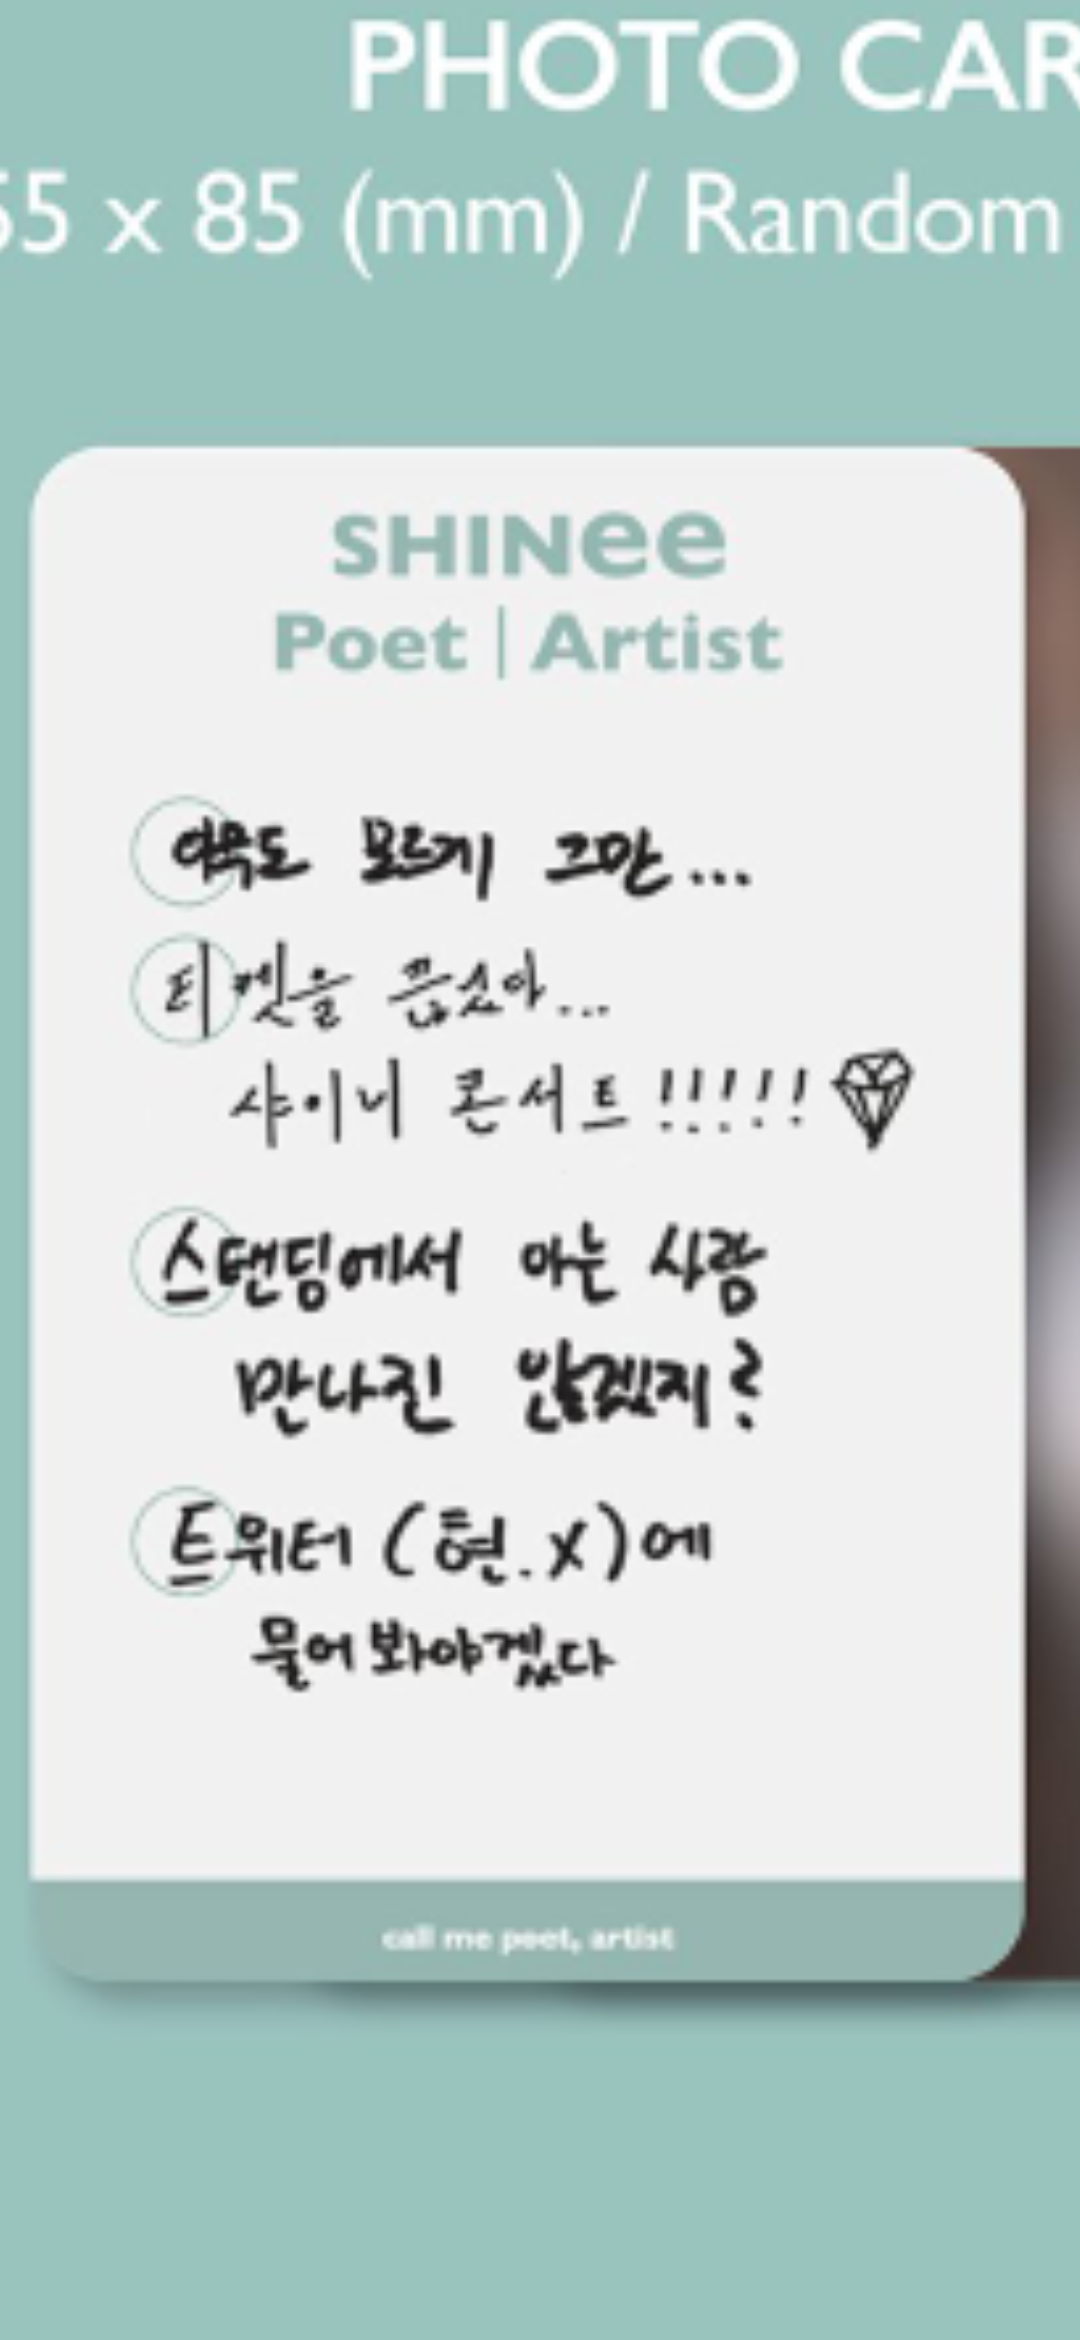 PHOTO CAR
55 x 85 (mm) / Random
SHINee
Poet | Artist
아무도 모르게 그만...
티켓을 끊소아...
샤이니 콘서트!!!!!
스탠딩에서 아는 사람
만나진 않겠지?
트위터 (현.X)에
물어봐야겠다
call me poet, artist